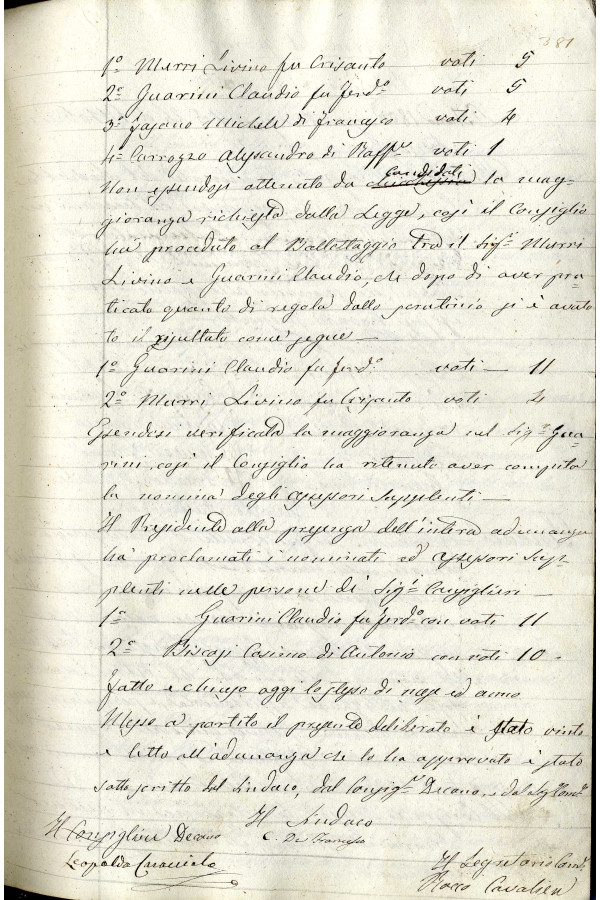 381
1º Murri Livino fu Crisanto voti 5
2º Guarini Claudio fu Ferdº voti 5
3º Fasano Michele di Francesco voti 4
4º Carrozzo Alessandro di Raffle voti 1
Non essendosi ottenuto da candidati la mag-
gioranza richiesta dalla Legge, così il Consiglio
ha proceduto al Ballottaggio tra il Sigr Murri
Livino e Guarini Claudio, che dopo di aver pra-
ticato quanto di regola dallo scrutinio si è avuto
to il risultato come segue —
1º Guarini Claudio fu Ferdº voti — 11
2º Murri Livino fu Crisanto voti 4
Essendosi verificata la maggioranza nel Sigr Gua-
rini, così il Consiglio ha ritenuto aver compiuta
la nomina degli assessori supplenti —
Il Presidente alla presenza dell'intera adunanza
ha proclamati i nominati ed assessori sup-
plenti nelle persone di Sigri Consiglieri —
1º Guarini Claudio fu Ferdº con voti 11
2º Biscosi Cosimo di Antonio con voti 10 -
Fatto e chiuso oggi lo stesso dì mese ed anno
Messo a partito il presente deliberato è stato vinto
e letto all'adunanza che lo ha approvato è stato
sottoscritto dal Sindaco, dal Consigre Decano, e dal Segr Comle
Il Sindaco
Il Consigliere Decano
C. De Francesco
Leopoldo Caracciolo
Il Segretario Comle
Rocco Cavalieri